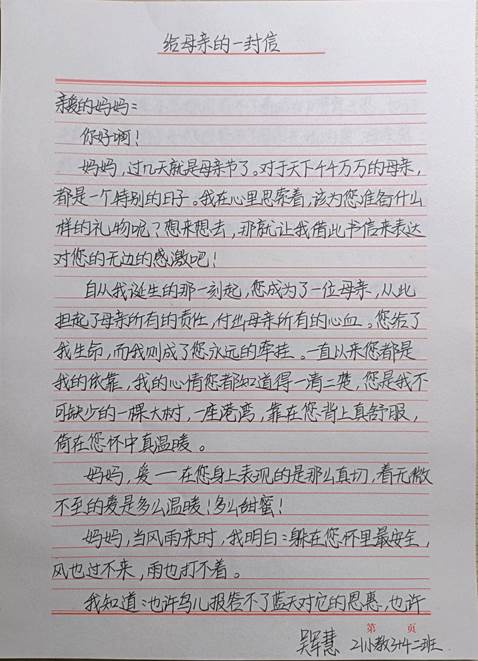 给母亲的一封信
亲爱的妈妈:
你好啊!
妈妈,过几天就是母亲节了。对于天下千千万万的母亲,
都是一个特别的日子。我在心里思索着,该为您准备什么
样的礼物呢?想来想去,那就让我借此书信来表达
对您的无边的感激吧!
自从我诞生的那一刻起,您成为了一位母亲,从此
担起了母亲所有的责任,付出母亲所有的心血。您给了
我生命,而我则成了您永远的牵挂。一直以来您都是
我的依靠,我的心情您都知道得一清二楚,您是我不
可缺少的一棵大树,一座港湾,靠在您背上真舒服,
倚在您怀中真温暖。
妈妈,爱一在您身上表现的是那么真切,看无微
不至的爱是多么温暖!多么甜蜜!
妈妈,当风雨来时,我明白:躲在您怀里最安全,
风也过不来,雨也打不着。
我知道:也许鸟儿报答不了蓝天对它的恩惠,也许
第 页
吴军慧 21小教3+4二班